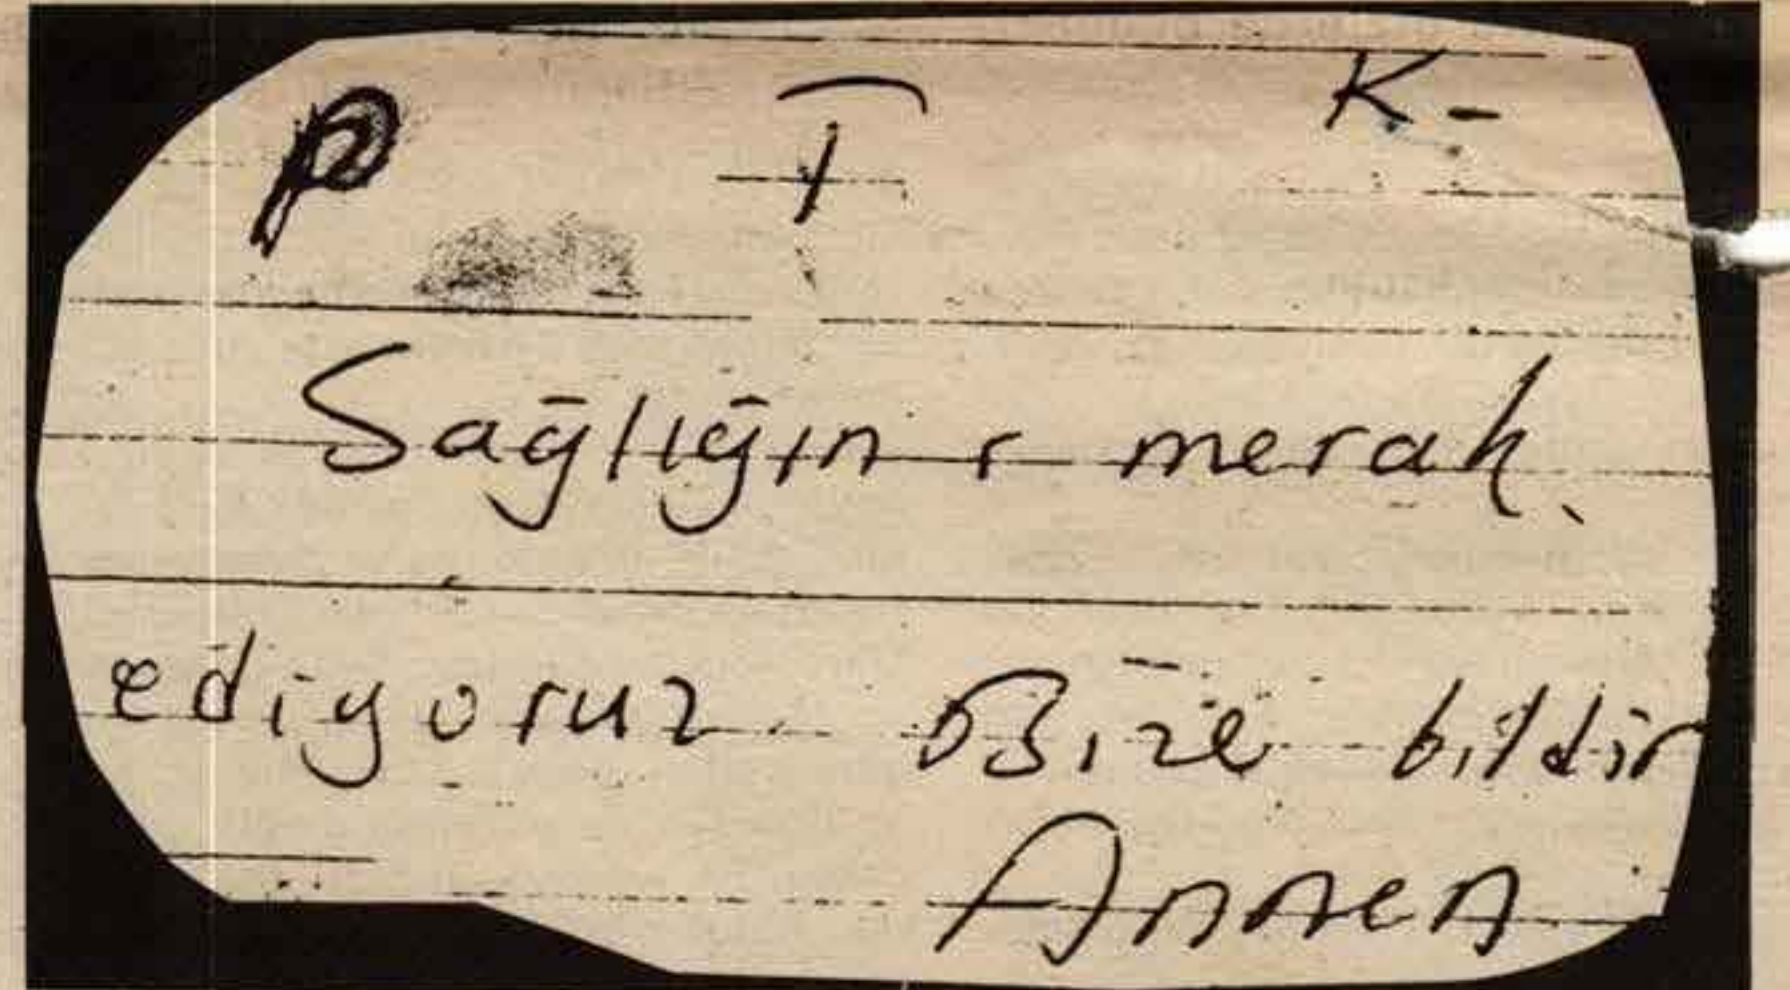 P T K-
Sağlığını merak
ediyoruz. Bize bildir
Annen